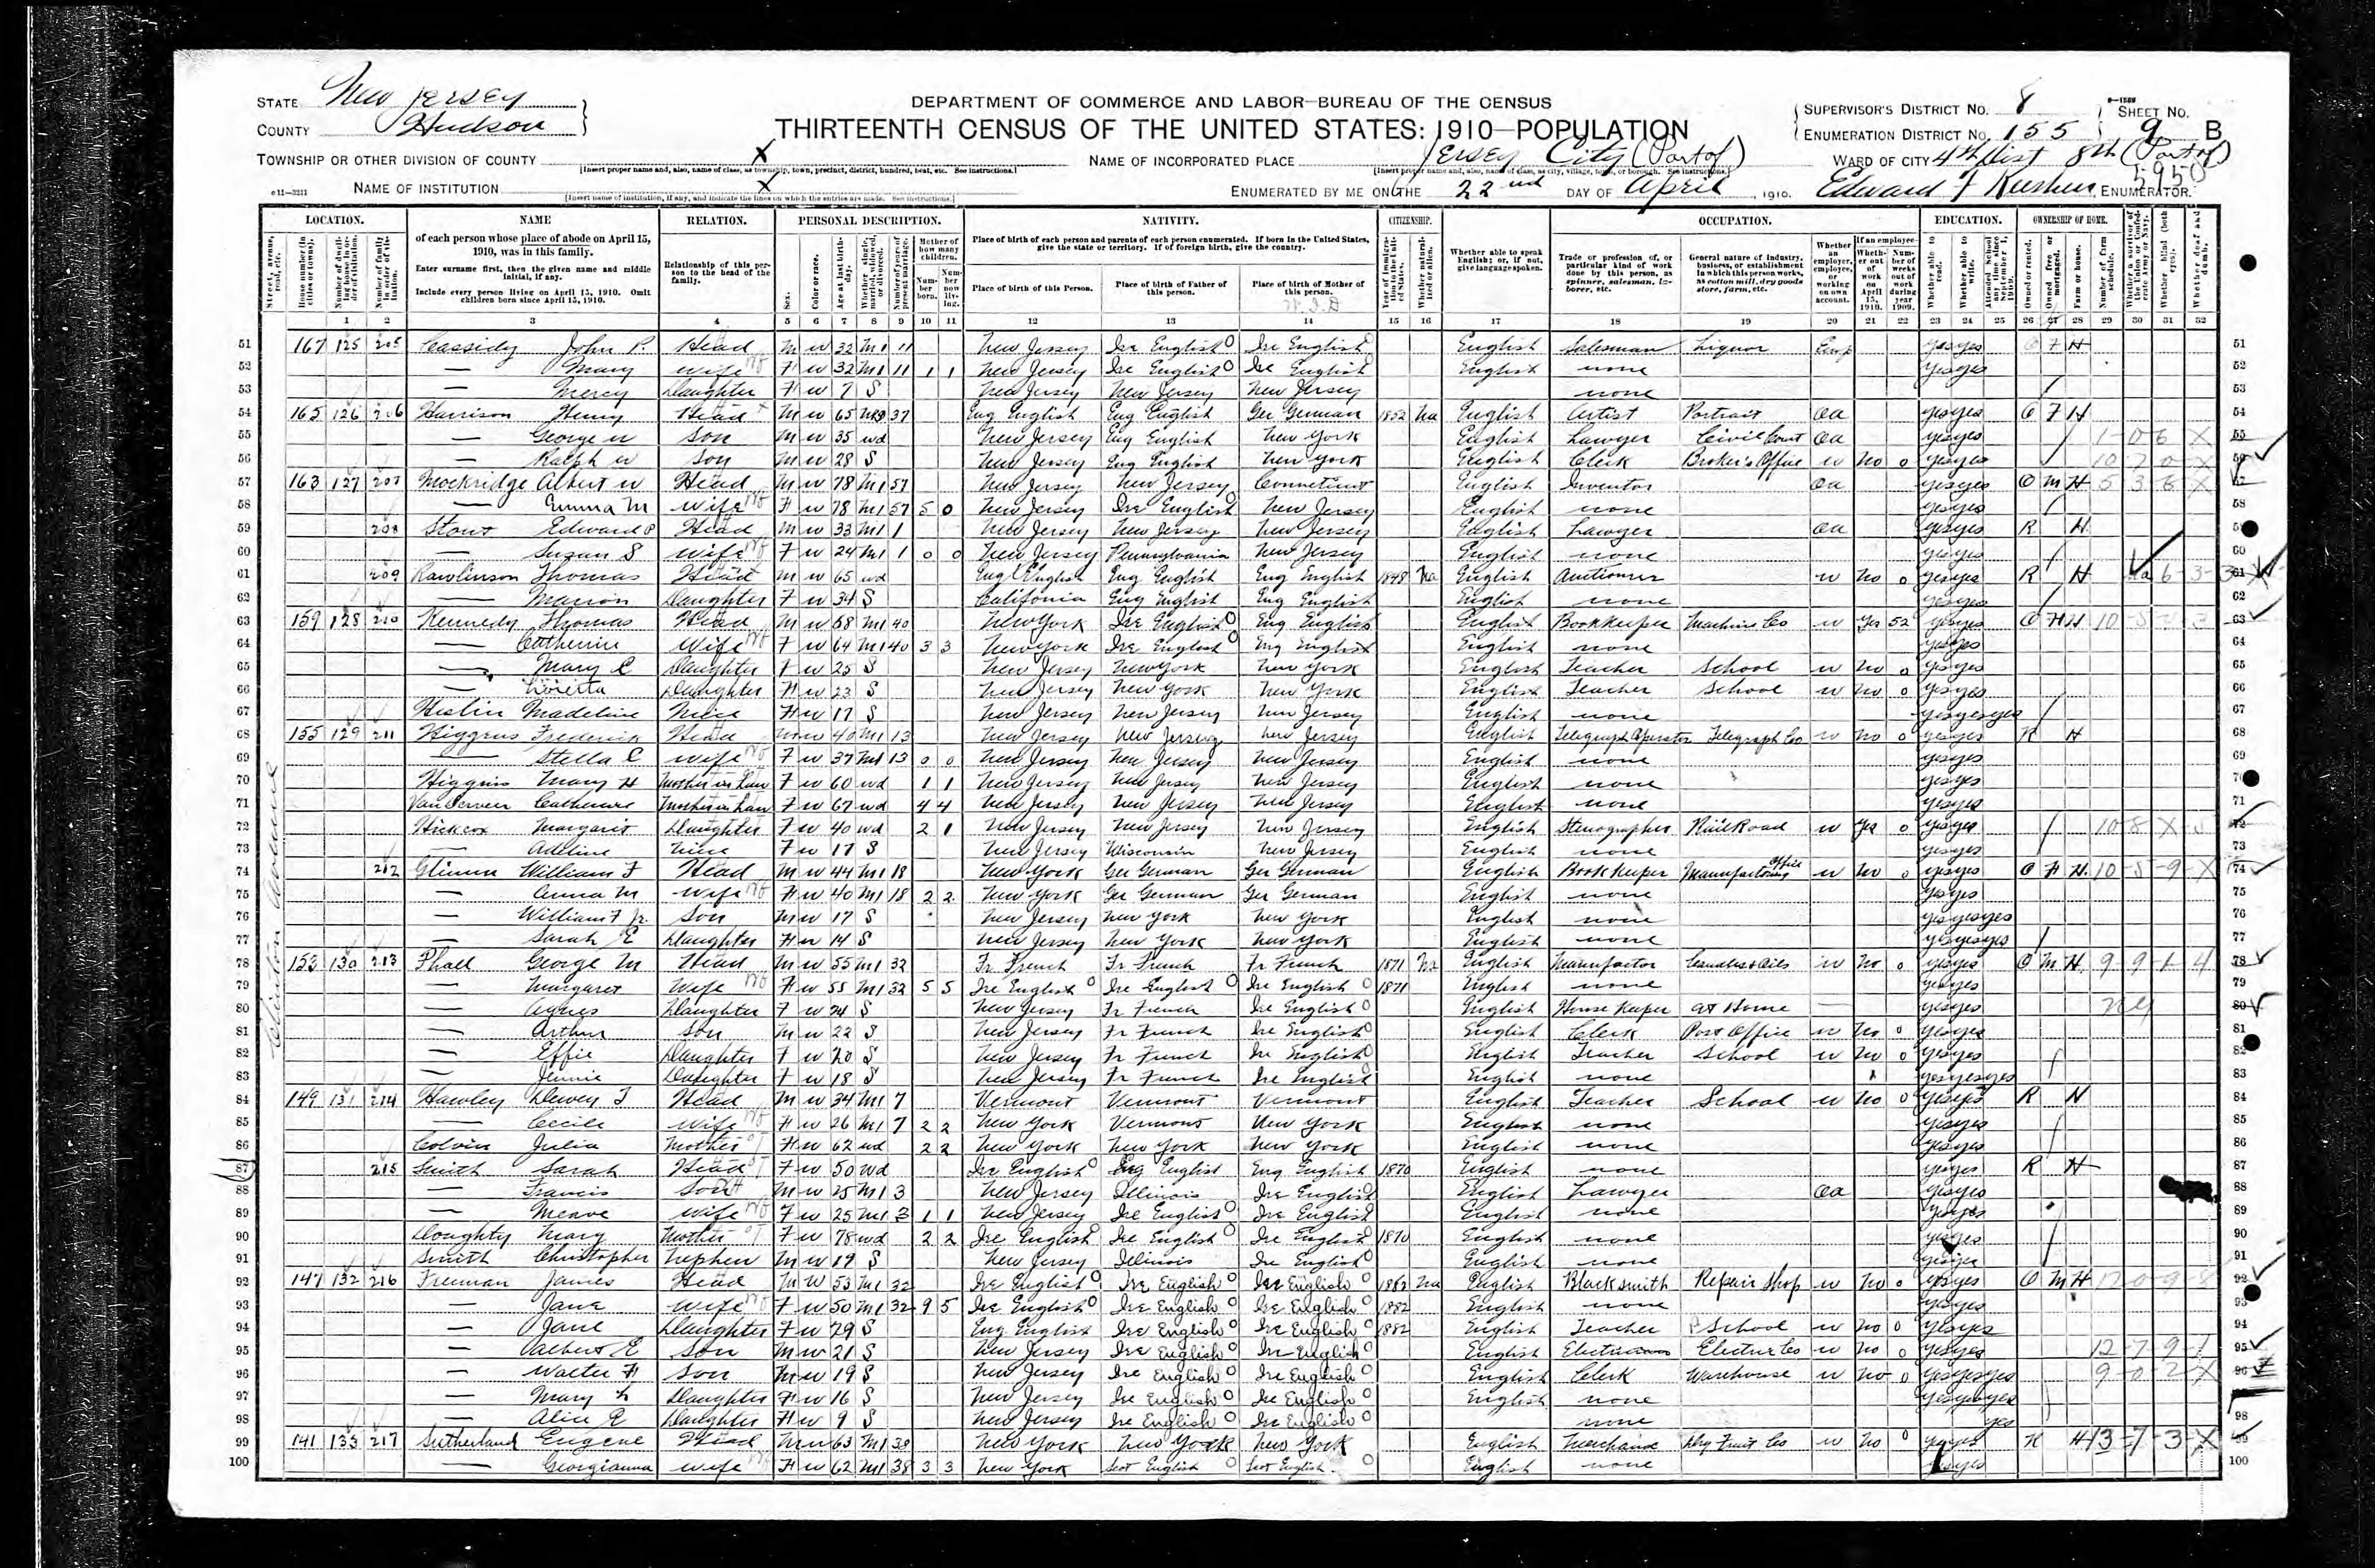 STATE New Jersey
COUNTY Hudson
DEPARTMENT OF COMMERCE AND LABOR—BUREAU OF THE CENSUS
THIRTEENTH CENSUS OF THE UNITED STATES: 1910—POPULATION
SUPERVISOR'S DISTRICT No. 8
ENUMERATION DISTRICT No. 155
SHEET No. 9 B
TOWNSHIP OR OTHER DIVISION OF COUNTY X
NAME OF INCORPORATED PLACE Jersey City (Part of)
WARD OF CITY 4th Dist 8th (Part of)
NAME OF INSTITUTION X
ENUMERATED BY ME ON THE 22nd DAY OF April, 1910. Edward F ENUMERATOR.
5950
LOCATION. NAME RELATION. PERSONAL DESCRIPTION. NATIVITY. CITIZENSHIP. OCCUPATION. EDUCATION. OWNERSHIP OF HOME.
of each person whose place of abode on April 15, 1910, was in this family.
Enter surname first, then the given name and middle initial, if any.
Include every person living on April 15, 1910. Omit children born since April 15, 1910.
Relationship of this person to the head of the family.
Place of birth of each person and parents of each person enumerated. If born in the United States, give the state or territory. If of foreign birth, give the country.
Place of birth of this Person. Place of birth of Father of this person. Place of birth of Mother of this person.
Whether able to speak English; or, if not, give language spoken.
Trade or profession of, or particular kind of work done by this person, as spinner, salesman, laborer, etc.
General nature of industry, business, or establishment in which this person works, as cotton mill, dry goods store, farm, etc.
Clinton Avenue
51 167 125 205 Cassidy John P. Head M W 32 M1 11 New Jersey Ire English Ire English English Salesman Liquor Emp yes yes O F H
52 — Mary wife F W 32 M1 11 1 1 New Jersey Ire English Ire English English none yes yes
53 — Mercy Daughter F W 7 S New Jersey New Jersey New Jersey none
54 165 126 206 Harrison Henry Head M W 65 37 Eng English Eng English Ger German 1852 Na English Artist Portrait Oa yes yes O F H
55 — George W Son M W 35 wd New Jersey Eng English New York English Lawyer Civil Court Oa yes yes
56 — Ralph W Son M W 28 S New Jersey Eng English New York English Clerk Broker's Office W No 0 yes yes
57 163 127 207 Mockridge Albert W Head M W 78 M1 57 New Jersey New Jersey Connecticut English Inventor Oa yes yes O M H
58 — Emma M wife F W 78 M1 57 5 0 New Jersey Ire English New Jersey English none yes yes
59 208 Stout Edward P Head M W 33 M1 1 New Jersey New Jersey New Jersey English Lawyer Oa yes yes R H
60 — Susan S wife F W 24 M1 1 0 0 New Jersey Pennsylvania New Jersey English none yes yes
61 209 Rawlinson Thomas Head M W 65 wd Eng English Eng English Eng English 1848 Na English Auctioneer W No 0 yes yes R H
62 — Marion Daughter F W 34 S California Eng English Eng English English none yes yes
63 159 128 210 Kennedy Thomas Head M W 68 M1 40 New York Ire English Eng English English Bookkeeper Machine Co W Yes 52 yes yes O F H
64 — Catherine Wife F W 64 M1 40 3 3 New York Ire English Eng English English none yes yes
65 — Mary C Daughter F W 25 S New Jersey New York New York English Teacher School W No 0 yes yes
66 — Loretta Daughter F W 23 S New Jersey New York New York English Teacher School W No 0 yes yes
67 Madeline Niece F W 17 S New Jersey New Jersey New Jersey English none yes yes yes
68 155 129 211 Higgins Frederick Head M W 40 M1 13 New Jersey New Jersey New Jersey English Telegraph Operator Telegraph Co W No 0 yes yes R H
69 — Stella C wife F W 37 M1 13 0 0 New Jersey New Jersey New Jersey English none yes yes
70 Higgins Mary H Mother in Law F W 60 wd 1 1 New Jersey New Jersey New Jersey English none yes yes
71 Van Catherine Mother in Law F W 67 wd 4 4 New Jersey New Jersey New Jersey English none yes yes
72 Hickcox Margaret Daughter F W 40 wd 2 1 New Jersey New Jersey New Jersey English Stenographer Rail Road W Yes 0 yes yes
73 — Adeline Niece F W 17 S New Jersey Wisconsin New Jersey English none yes yes
74 212 William F Head M W 44 M1 18 New York Ger German Ger German English Book Keeper Manufacturing Office W No 0 yes yes O F H
75 — Anna M wife F W 40 M1 18 2 2 New York Ger German Ger German English none yes yes
76 — William F Jr. Son M W 17 S New Jersey New York New York English none yes yes yes
77 — Sarah E Daughter F W 14 S New Jersey New York New York English none yes yes yes
78 153 130 213 Phall George M Head M W 55 M1 32 Fr French Fr French Fr French 1871 Na English W No 0 yes yes O M H
79 — Margaret Wife F W 55 M1 32 5 5 Ire English Ire English Ire English 1871 English none yes yes
80 — Agnes Daughter F W 24 S New Jersey Fr French Ire English English House Keeper at Home — yes yes
81 — Arthur Son M W 22 S New Jersey Fr French Ire English English Clerk Post Office W No 0 yes yes
82 — Effie Daughter F W 20 S New Jersey Fr French Ire English English Teacher School W No 0 yes yes
83 — Jennie Daughter F W 18 S New Jersey Fr French Ire English English none yes yes yes
84 149 131 214 Hawley Dewey T Head M W 34 M1 7 Vermont Vermont Vermont English Teacher School W No 0 yes yes R H
85 — Cecile wife F W 26 M1 7 2 2 New York Vermont New York English none yes yes
86 Colvin Julia Mother F W 62 wd 2 2 New York New York New York English none yes yes
87 215 Smith Sarah Head F W 50 wd Ire English Eng English Eng English 1870 English none yes yes R H
88 — Francis Son M W 25 M1 3 New Jersey Illinois Ire English English Lawyer Oa yes yes
89 — Meave wife F W 25 M1 3 1 1 New Jersey Ire English Ire English English none yes yes
90 Doughty Mary Mother F W 78 wd 2 2 Ire English Ire English Ire English 1870 English none yes yes
91 Smith Christopher Nephew M W 19 S New Jersey Illinois Ire English English none yes yes
92 147 132 216 Freeman James Head M W 53 M1 32 Ire English Ire English Ire English 1882 Na English Blacksmith Repair Shop W No 0 yes yes O M H
93 — Jane wife F W 50 M1 32 9 5 Ire English Ire English Ire English 1882 English none yes yes
94 — Jane Daughter F W 29 S Eng English Ire English Ire English 1882 English Teacher School W No 0 yes yes
95 — Albert E Son M W 21 S New Jersey Ire English Ire English English Electrician Electric Co W No 0 yes yes
96 — Walter H Son M W 19 S New Jersey Ire English Ire English English Clerk Warehouse W No 0 yes yes yes
97 — Mary L Daughter F W 16 S New Jersey Ire English Ire English English none yes yes yes
98 — Alice E Daughter F W 9 S New Jersey Ire English Ire English none yes
99 141 133 217 Sutherland Eugene Head M W 63 M1 38 New York New York New York English Merchant Dry Fruit Co W No 0 yes yes R H
100 — Georgianna wife F W 62 M1 38 3 3 New York Scot English Scot English English none yes yes